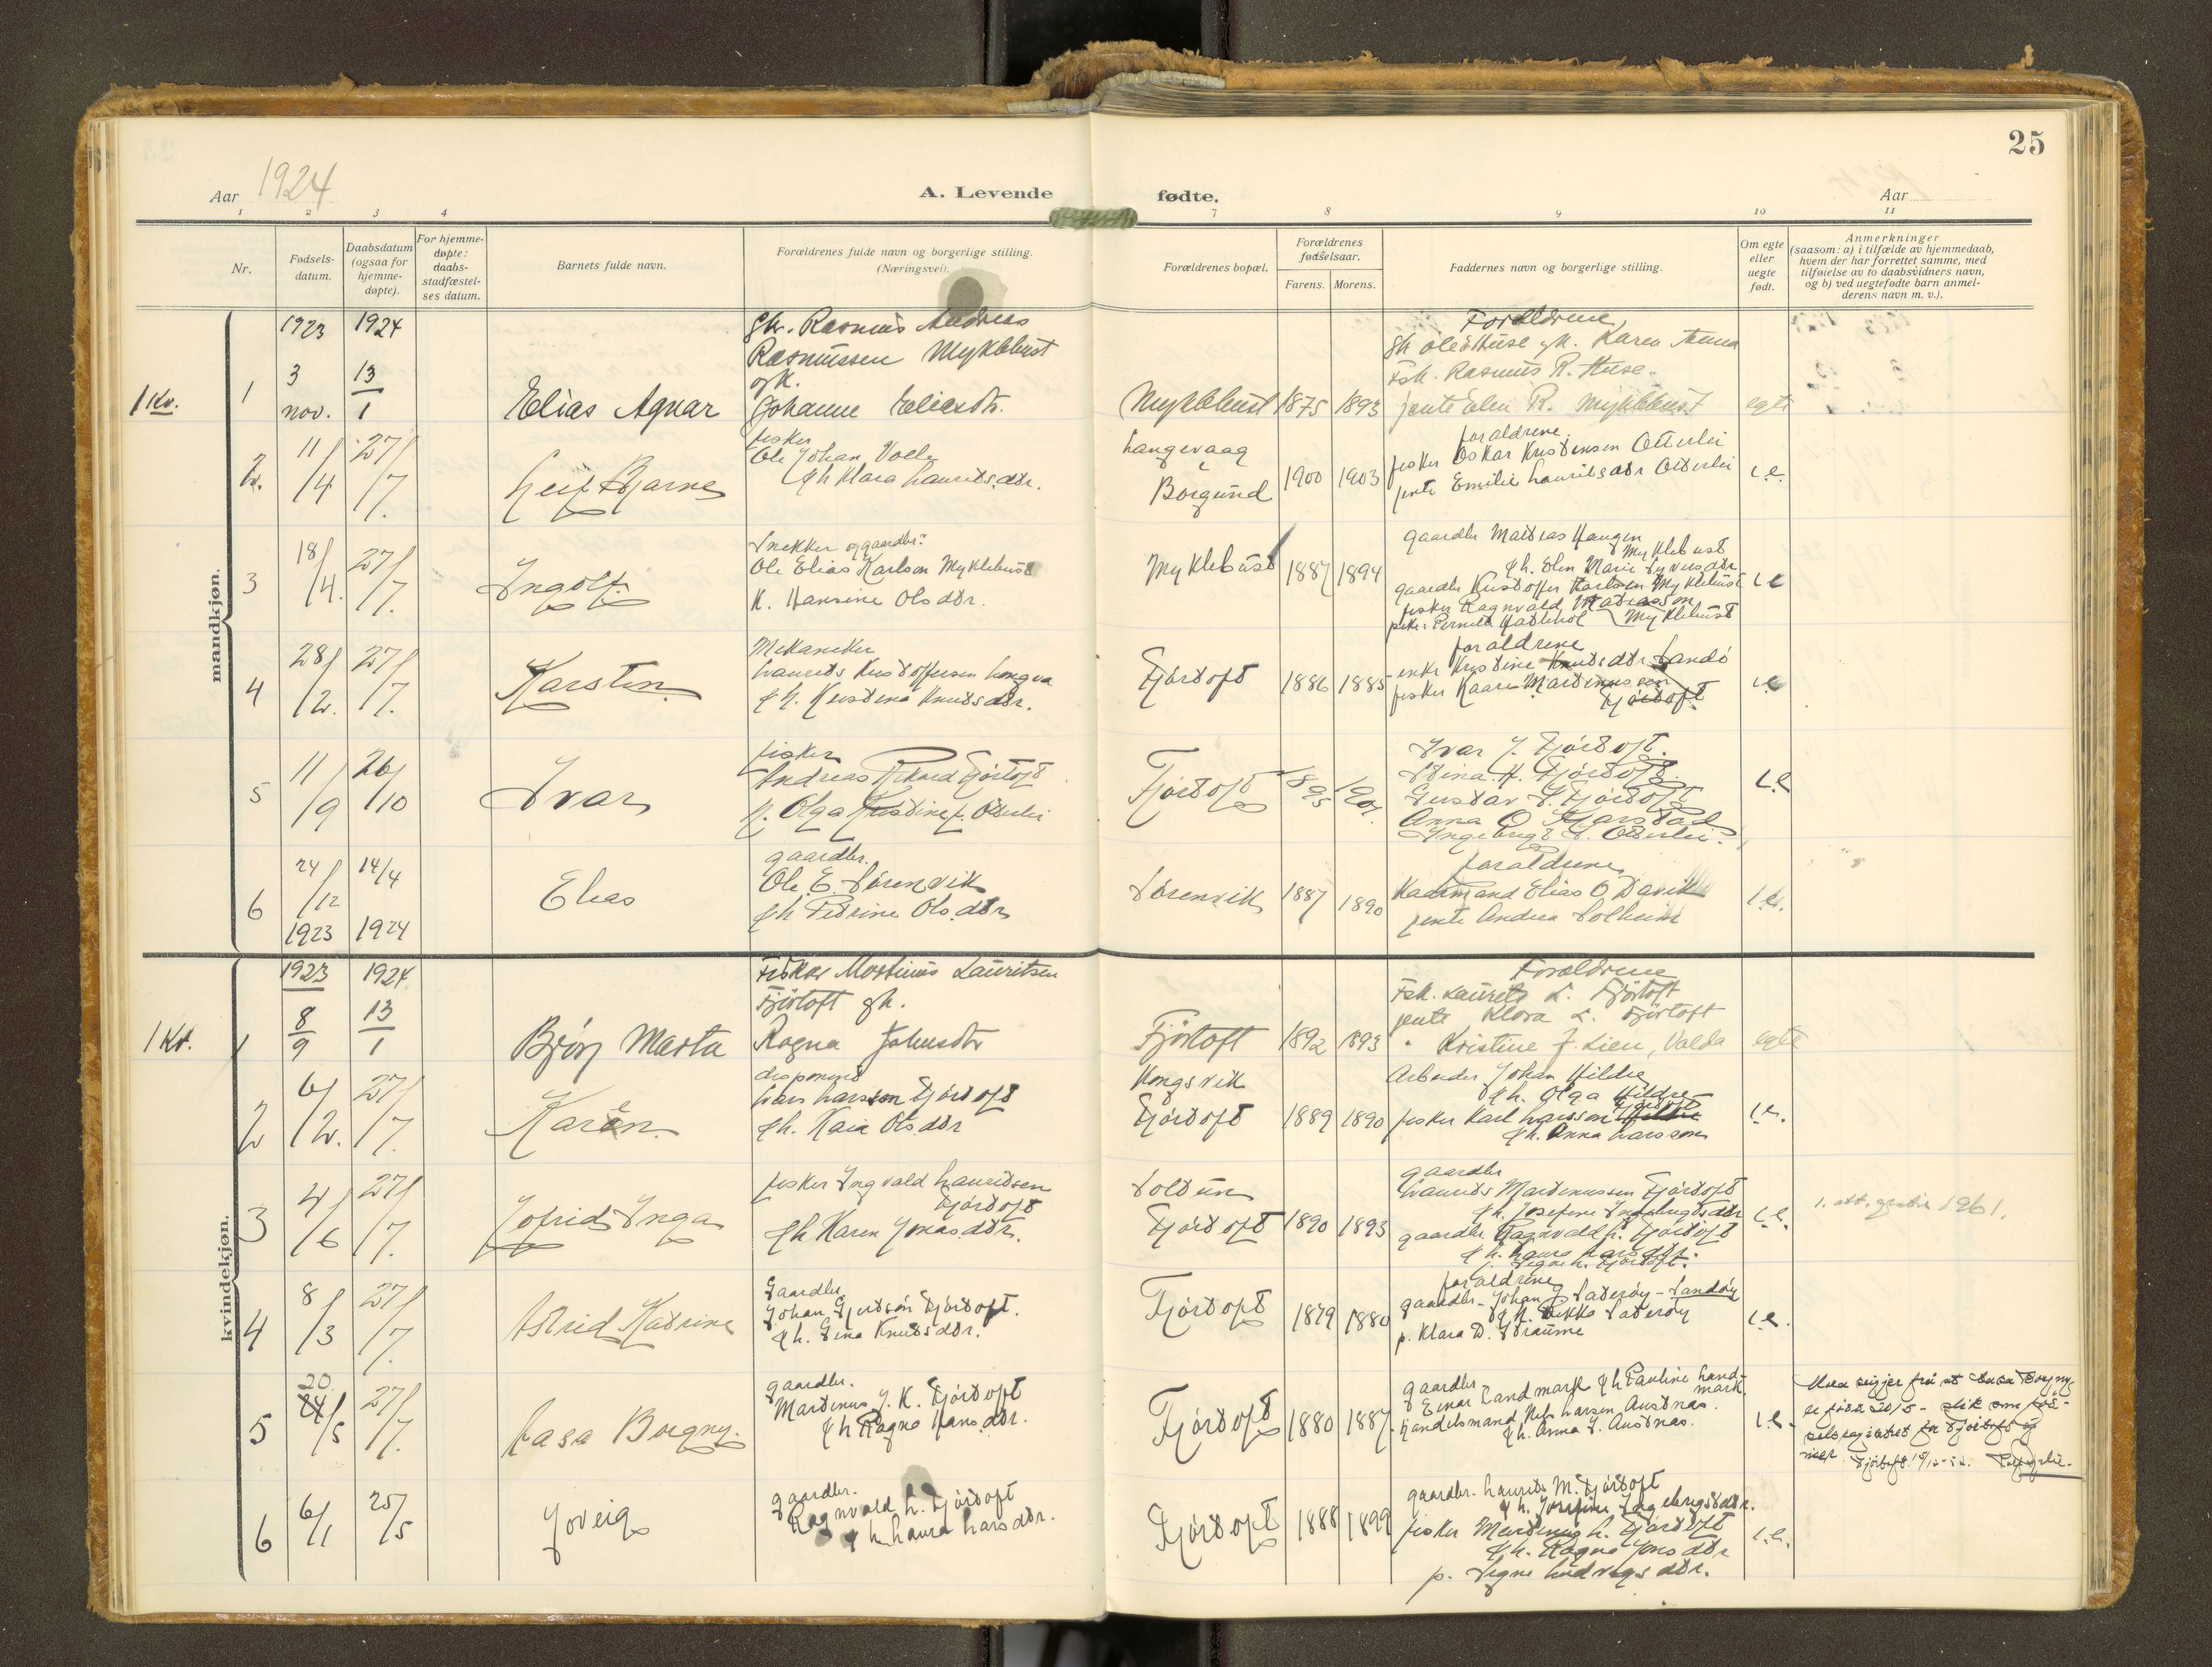 25
Aar 1924
A. Levende fødte.
Aar
1 2 3 4 7 8 9 10 11
Nr.
Fødsels-
datum.
Daabsdatum
(ogsaa for
hjemme-
døpte).
For hjemme-
døpte:
daabs-
stadfæstel-
ses datum.
Barnets fulde navn.
Forældrenes fulde navn og borgerlige stilling.
(Næringsvei).
Forældrenes bopæl.
Forældrenes
fødselsaar.
Farens. Morens.
Faddernes navn og borgerlige stilling.
Om egte
eller
uegte
født.
Anmerkninger
(saasom: a) i tilfælde av hjemmedaab,
hvem der har forrettet samme, med
tilføielse av to daabsvidners navn,
og b) ved uegtefødte barn anmel-
derens navn m. v.).
mandkjøn.
1 Kv.
1
1923
3
nov.
1924
13
1
Elias Agnar
Gbr. Rasmus Andreas
Rasmussen Myklebust
og k.
Johanne Eliasdtr.
Myklebust 1875 1893
Forældrene,
Rasmus R. Huse.
jente Elen R. Myklebust
egte
2.
11/4
27/7.
Leif Bjarne
fisker
Ole Johan Volle
& h Klara Lauritsdtr.
Langevaag
Borgund
1900 1903
foraldrene.
fisker Oskar Kristensen Otterlei
jente Emilie Lauritsdtr Otterlei
e.
3
18/4.
27/7.
Ingolf.
Snekker og gaardbr:
Ole Elias Karlson Myklebust
K. Hansine Olsdtr.
Myklebust 1887 1894
gaardbr Matias Haugen
Myklebust
& h. Elen Marie Syversdtr
gaardbr Kristoffer Karlsen Myklebust
fisker Ragnvald Matiasson
Myklebust
e
4
28/2.
27/7.
Karsten.
Mekaniker
Laurits Kristoffersen Longva
& h. Kristina Knutsdtr.
Fjørtoft 1886 1885
foraldrene
enke Kristine Knutsdtr Sandø
fisker Kaare Martinussen
Fjørtoft.
e
5
11/9
26/10
Ivar
fisker
Andreas Rikard Fjørtoft
k. Olga Kristine f. Otterlei
Fjørtoft 1895 1901
Ivar J. Fjørtoft.
Stina H. Fjørtoft.
Gustav S. Fjørtoft
Anna O Kjerstad
Ingebrigt S. Otterlei.
e
6
24/12
1923
14/4
1924
Elias
gaardbr.
Ole E. Sørenvik
& h Petrine Olsdtr
Sørenvik 1887 1890
foraldrene
Elias O Davik
jente Andrea Solheim
e.
kvindekjøn.
1 Kv.
1
1923
8
9
1924
13
1
Bjørg Marta
Fisker Martinus Lauritsen
Fjörtoft gh.
Ragna Johnsdtr
Fjörtoft 1892 1893
Forældrene
Fsk. Laurits L. Fjörtoft
jente Klara L. Fjörtoft
" Kristine J. Lien, Volda
egte
2
6/2.
27/7.
Karen.
disponent
Lars Larsson Fjørtoft
& h. Kaia Olsdtr
Kongsvik
Fjørtoft 1889 1890
Arbeider Johan Hildre
& h. Olga Hildre
fisker Karl Larsson Fjørtoft
& h. Anna Larsson
e.
3
4/6
27/7.
Jofrid Inga
fisker Ingvald Lauritsen
Fjørtoft
& h Karen Jonasdtr.
Soltun
Fjørtoft 1890 1893
gaardbr
Laurits Martinussen Fjørtoft
& h. Josefine Ingebrigtsdtr
gaardbr Ragnvald L. Fjørtoft
& h. Laura Larsdtr.
Signe L. Fjørtoft.
e.
1. att. gratis 1961.
4
8/3
27/7.
Astrid Katrine
Gaardbr
Johan Gjertson Fjørtoft.
& h. Gina Knutsdtr.
Fjørtoft 1879 1880
foraldrene
gaardbr - Johan J Sæterøy - Sandøy
& h. Rikka Sæterøy
p. Klara D. Straume
e.
5
20
24/5
27/7.
Aasa Borgny.
gaardbr.
Martinus J. K. Fjørtoft
& h Ragna Hansdtr.
Fjørtoft 1880 1887.
gaardbr
Einar Landmark & h Pauline Land-
mark.
Handelsmand Nels Larsen Austnes.
& h. Anna J. Austnes.
e.
Mora seijer frå at Aasa Borgny
er født 20/5 - slik som fød-
selsregistret for Fjørtoft og
6
6/1
25/5
Goveig
gaardbr.
Ragnvald L. Fjørtoft
& h Laura Larsdtr.
Fjørtoft 1888 1899
gaardbr. Laurits M. Fjørtoft
& h. Josefine Ingebrigtsdtr.
fisker Martinus L. Fjørtoft
& h. Ragna Jonsdtr
p. Signe Ludvigsdtr.
e.